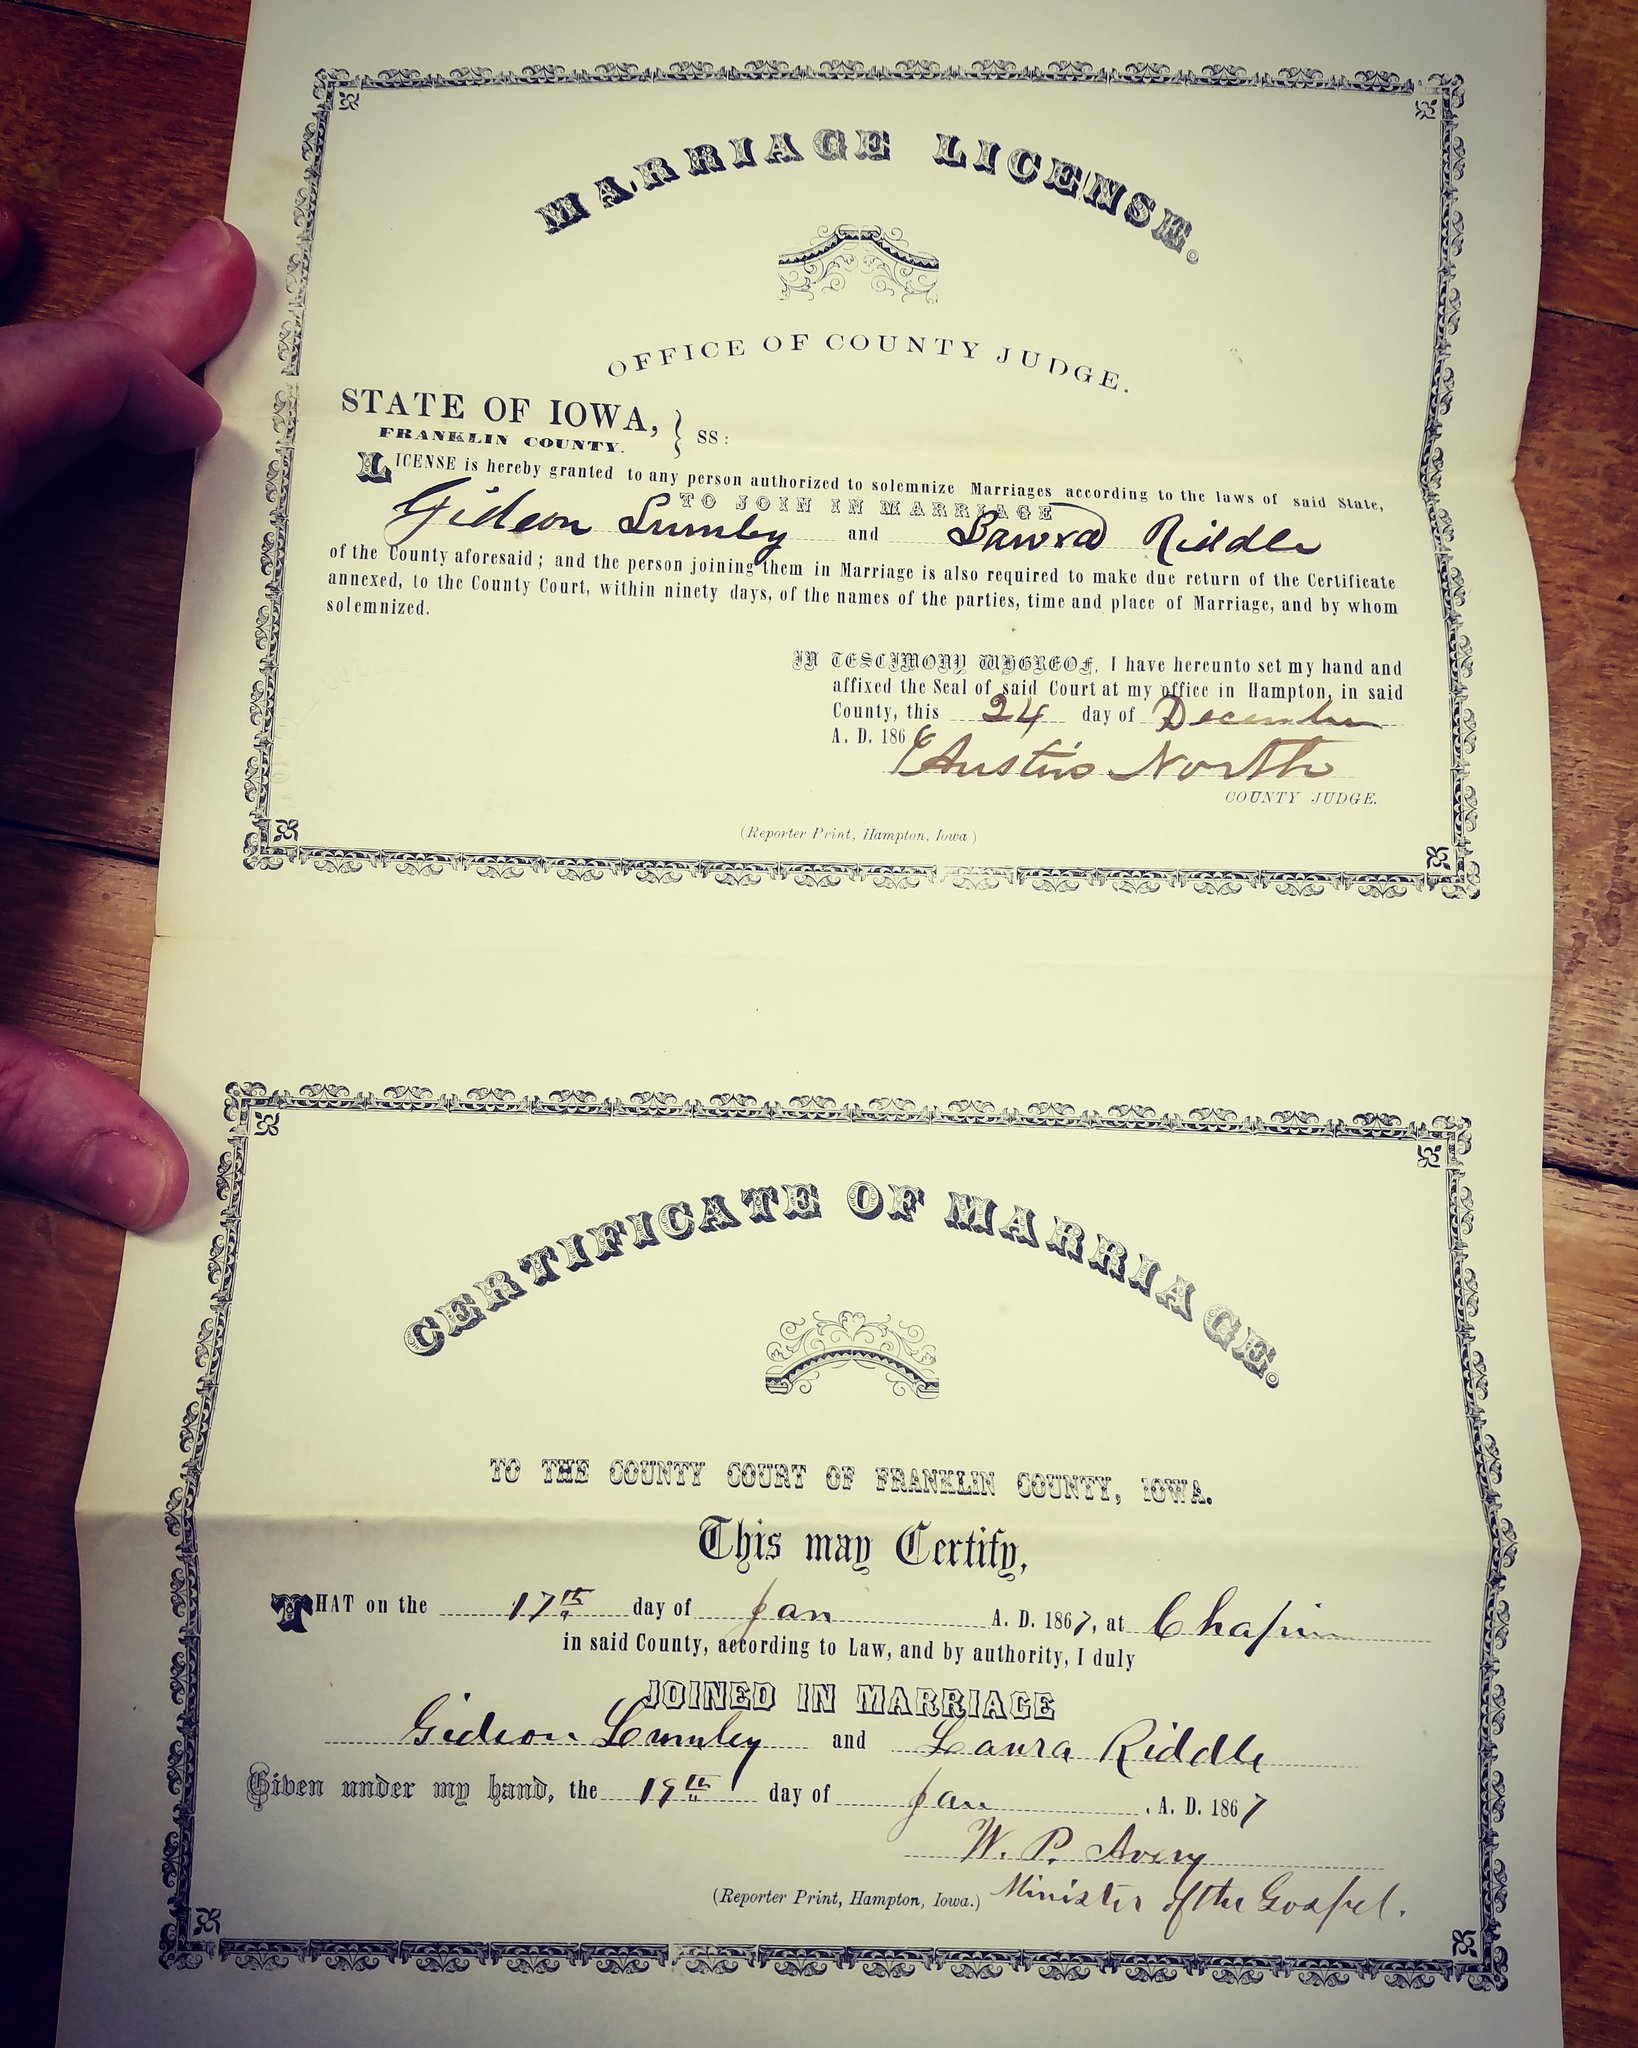 MARRIAGE LICENSE.
OFFICE OF COUNTY JUDGE.
STATE OF IOWA, } SS:
FRANKLIN COUNTY.
LICENSE is hereby granted to any person authorized to solemnize Marriages according to the laws of said State,
TO JOIN IN MARRIAGE
Gideon Lumley and Lawra Riddle
of the County aforesaid; and the person joining them in Marriage is also required to make due return of the Certificate
annexed, to the County Court, within ninety days, of the names of the parties, time and place of Marriage, and by whom
solemnized.
IN TESTIMONY WHEREOF, I have hereunto set my hand and
affixed the Seal of said Court at my office in Hampton, in said
County, this 24 day of December
A. D. 1866
Austin North
COUNTY JUDGE.
(Reporter Print, Hampton, Iowa)
CERTIFICATE OF MARRIAGE.
TO THE COUNTY COURT OF FRANKLIN COUNTY, IOWA.
This may Certify,
THAT on the 17th day of Jan A. D. 1867, at Chapin
in said County, according to Law, and by authority, I duly
JOINED IN MARRIAGE
Gideon Lumley and Laura Riddle
Given under my hand, the 19th day of Jan . A. D. 1867
W. P. Avery
(Reporter Print, Hampton, Iowa.) Minister of the Gospel.